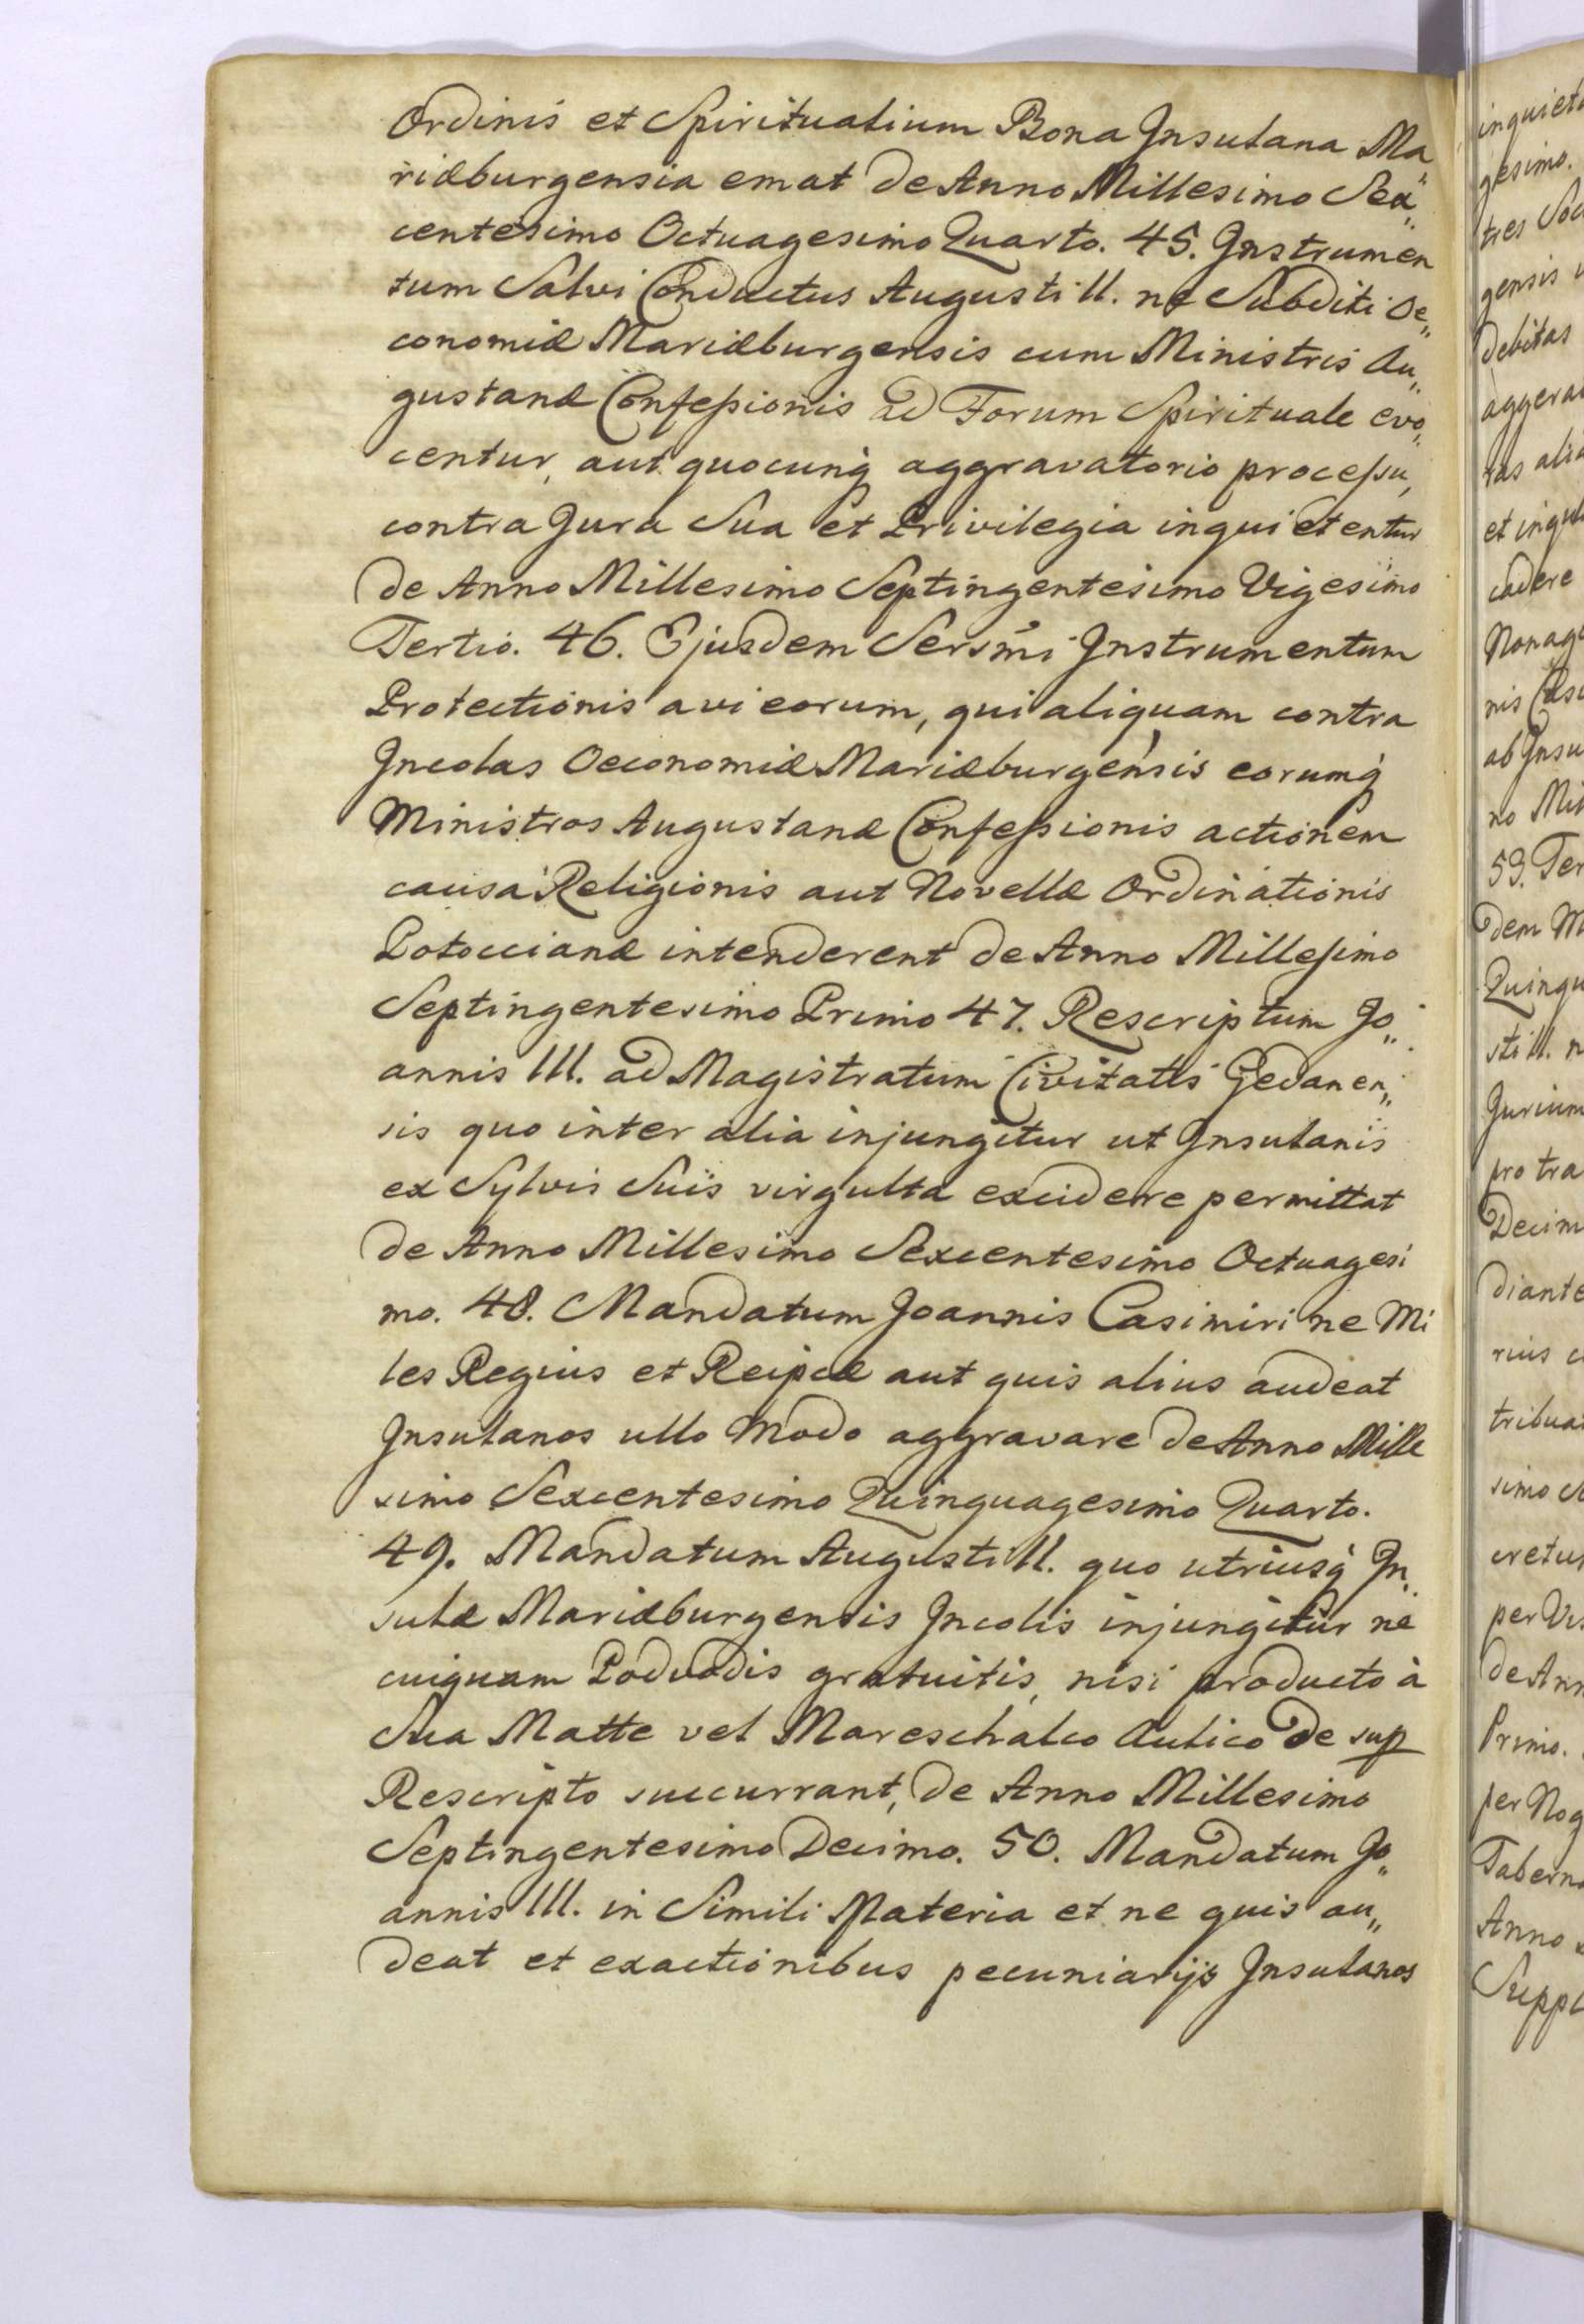 Ordinis et Spiritualium Bona Insulana Ma„
riæburgensia emat de Anno Millesimo Sex„
centesimo Octuagesimo Quarto. 45. Instrumen
tum Salvi Conductus Augusti II. ne Subditi Oe„
conomiæ Mariæburgensis cum Ministris Au„
gustanæ Confeßionis ad Forum Spirituale evo„
centur, aut quocunq́ aggravatorio proceßu,
contra Jura Sua et Privilegia inquietentur
de Anno Millesimo Septingentesimo Vigesimo
Tertio. 46. Ejusdem Sersm̃i Instrumentum
Protectionis a vi eorum, qui aliquam contra
Incolas Oeconomiæ Mariæburgensis eorumq́
Ministros Augustanæ Confeßionis actionem
causa Religionis aut Novellæ Ordinationis
Potoccianæ intenderent de Anno Milleſimo
Septingentesimo Primo 47. Rescriptum Jo„
annis III. ad Magistratum Civitatis Gedanen„
sis quo inter alia injungitur ut Insulanis
ex Sylvis Suis virgulta excidere permittat
de Anno Millesimo Sexcentesimo Octuagesi
mo. 48. Mandatum Joannis Casimiri ne Mi
les Regius et Reipcæ aut quis alius audeat
Insulanos ullo modo aggravare de Anno Mille
simo Sexcentesimo Quinquagesimo Quarto.
49. Mandatum Augusti II. quo utriusq́ In„
sulæ Mariæburgensis Incolis injungitur ne
cuiquam Podvodis gratuitis, nisi producto à
Sua Matte vel Mareschalco Aulico de sup
Rescripto succurrant, de Anno Millesimo
Septingentesimo Decimo. 50. Mandatum Jo„
annis III. in Simili Materia et ne quis au„
deat et exactionibus pecuniarijs Insulanos
inquiet
gesimo.
tres Soc
gensis
debitas
aggera
ras ali
et ingu
cadere
Nonage
nis Cas
ab Insu
no Mil
53. Ter
dem M
Quinqu
sti II. n
Jurium
pro tra
Decim
diante
rius c
tribua
simo
cretu
per Vis
de Ann
Primo.
per Nog
Tabern
Anno
Suppl